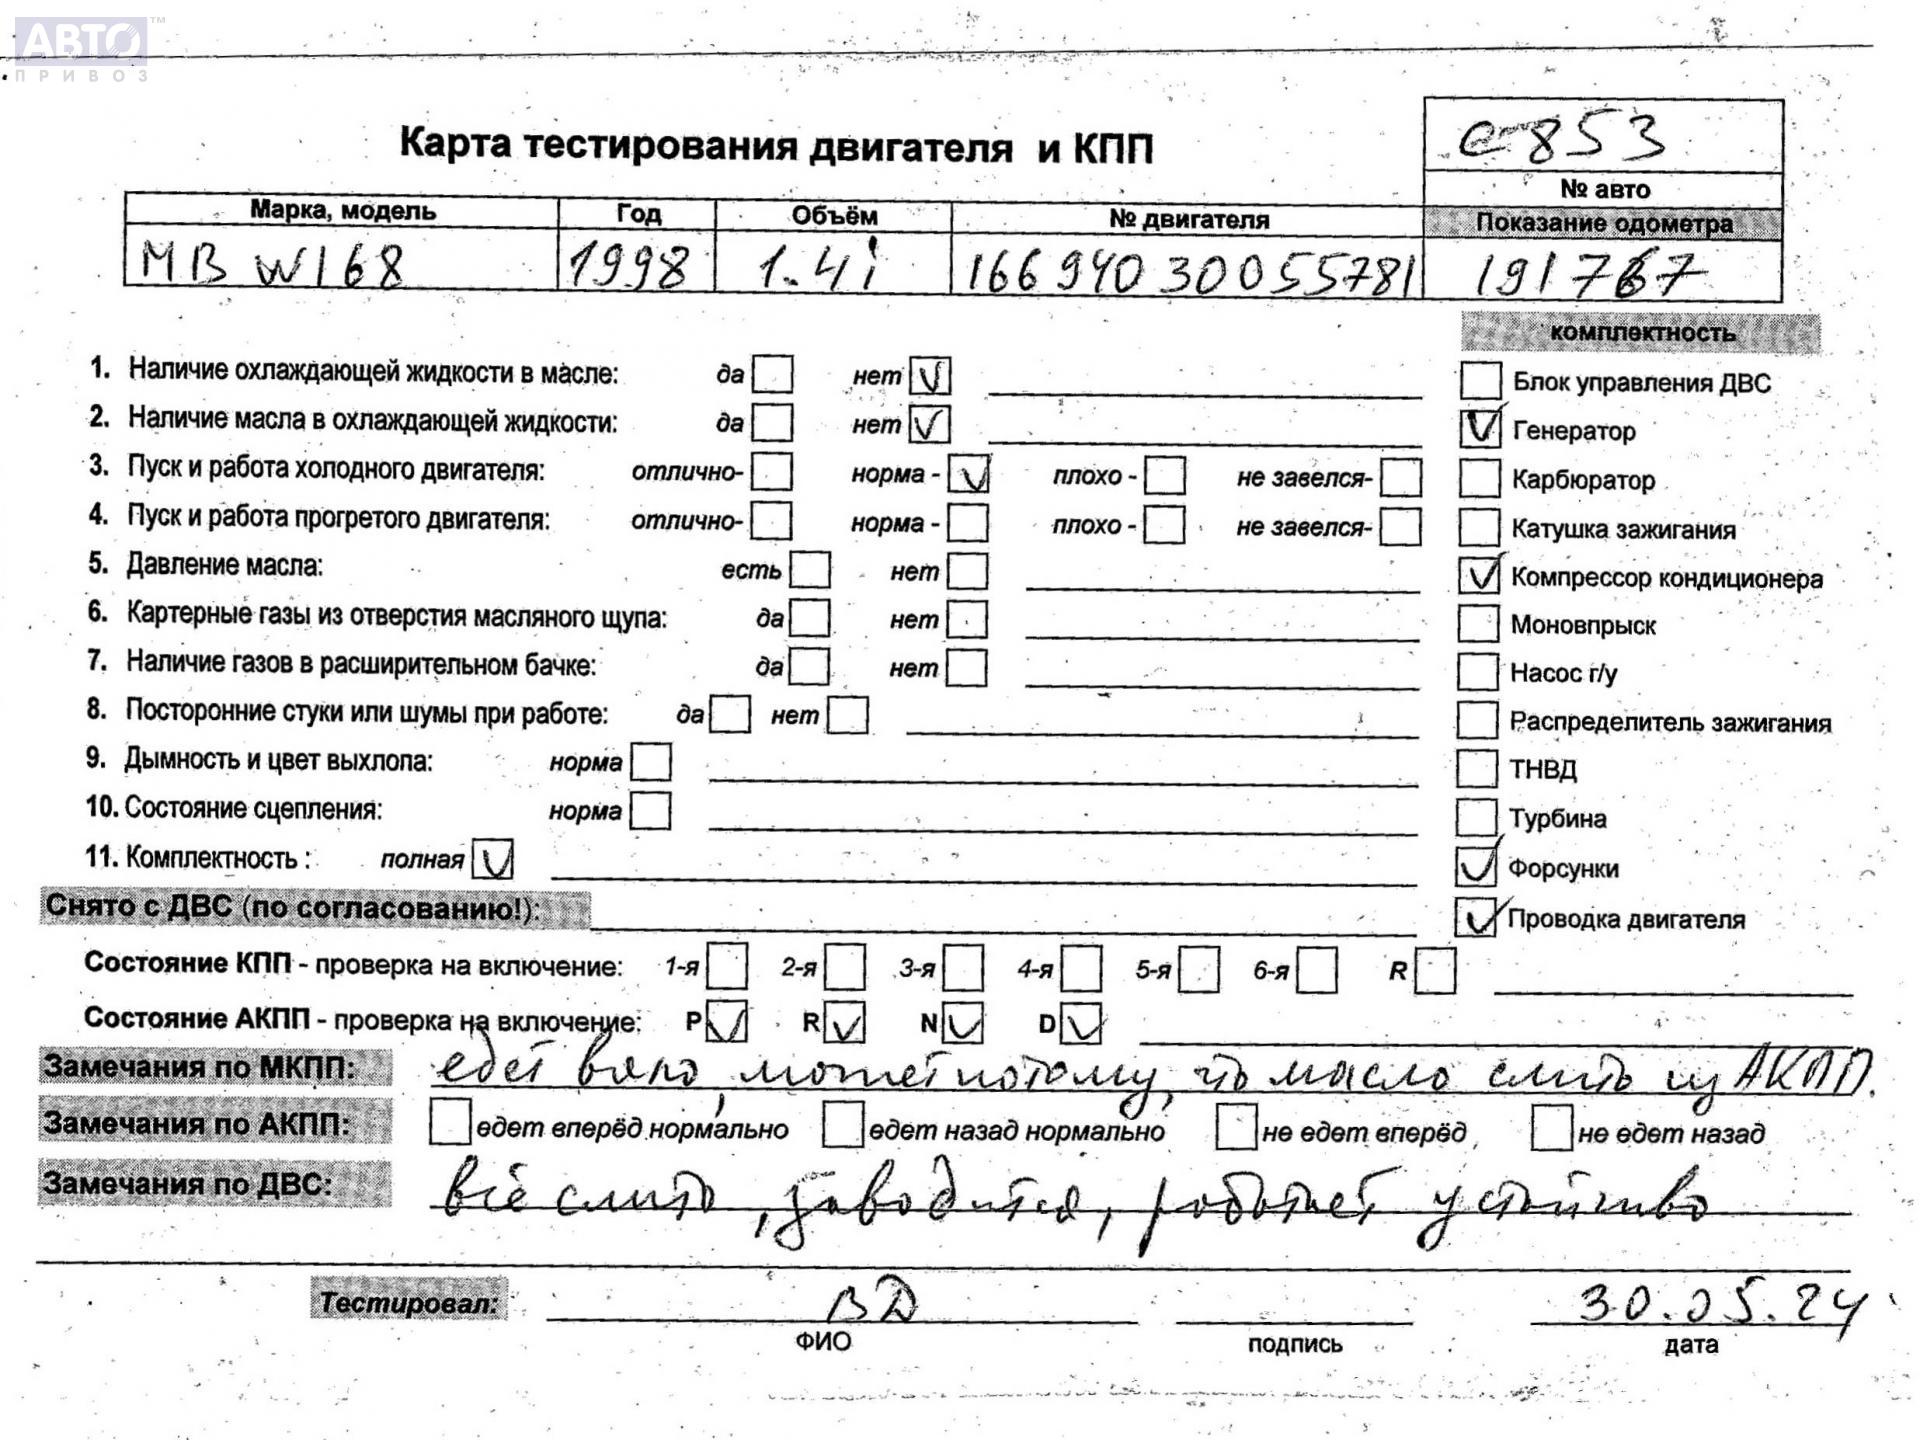 АВТО™
ПРИВОЗ
Карта тестирования двигателя и КПП
е-853
№ авто
Марка, модель Год Объём № двигателя Показание одометра
MB W168 1998 1.4i 166 940 30055781 191767
комплектность
1. Наличие охлаждающей жидкости в масле: да нет V
Блок управления ДВС
2. Наличие масла в охлаждающей жидкости: да нет V
V Генератор
3. Пуск и работа холодного двигателя: отлично- норма - V плохо - не завелся-
Карбюратор
4. Пуск и работа прогретого двигателя: отлично- норма - плохо - не завелся-
Катушка зажигания
5. Давление масла: есть нет
V Компрессор кондиционера
6. Картерные газы из отверстия масляного щупа: да нет
Моновпрыск
7. Наличие газов в расширительном бачке: да нет
Насос г/у
8. Посторонние стуки или шумы при работе: да нет
Распределитель зажигания
9. Дымность и цвет выхлопа: норма
ТНВД
10. Состояние сцепления: норма
Турбина
11. Комплектность : полная V
V Форсунки
Снято с ДВС (по согласованию!):
V Проводка двигателя
Состояние КПП - проверка на включение: 1-я 2-я 3-я 4-я 5-я 6-я R
Состояние АКПП - проверка на включение: P V R V N V D V
Замечания по МКПП: едет вяло, может потому, что масло слито из АКПП.
Замечания по АКПП: едет вперёд нормально едет назад нормально не едет вперёд не едет назад
Замечания по ДВС: всё слито, заводится, работает устойчиво
Тестировал: ВД 30.05.24
ФИО подпись дата